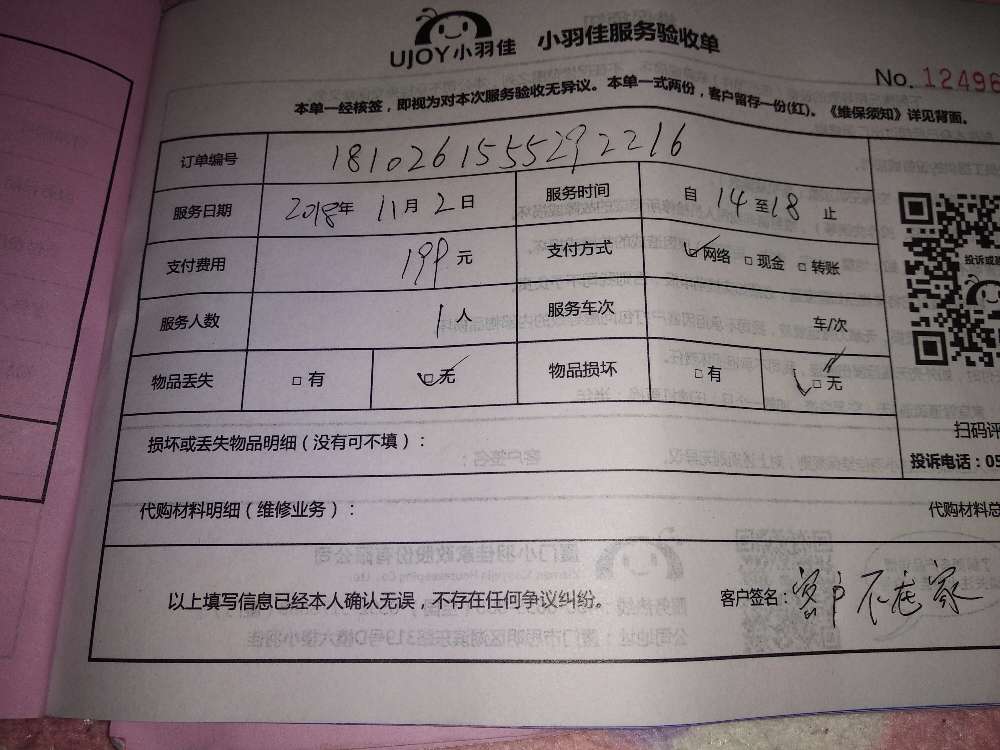 UJOY小羽佳 小羽佳服务验收单
No. 12496
本单一经核签，即视为对本次服务验收无异议。本单一式两份，客户留存一份(红)。《维保须知》详见背面。
订单编号 1810261555292216
服务日期 2018年 11月 2日 服务时间 自 14 至 18 止
支付费用 199 元 支付方式 ☑网络 □现金 □转账
投诉或
服务人数 1 人 服务车次 车/次
物品丢失 □有 ☑无 物品损坏 □有 ☑无
扫码评
损坏或丢失物品明细（没有可不填）：
投诉电话：05
代购材料明细（维修业务）： 代购材料总
以上填写信息已经本人确认无误，不存在任何争议纠纷。 客户签名：客户不在家